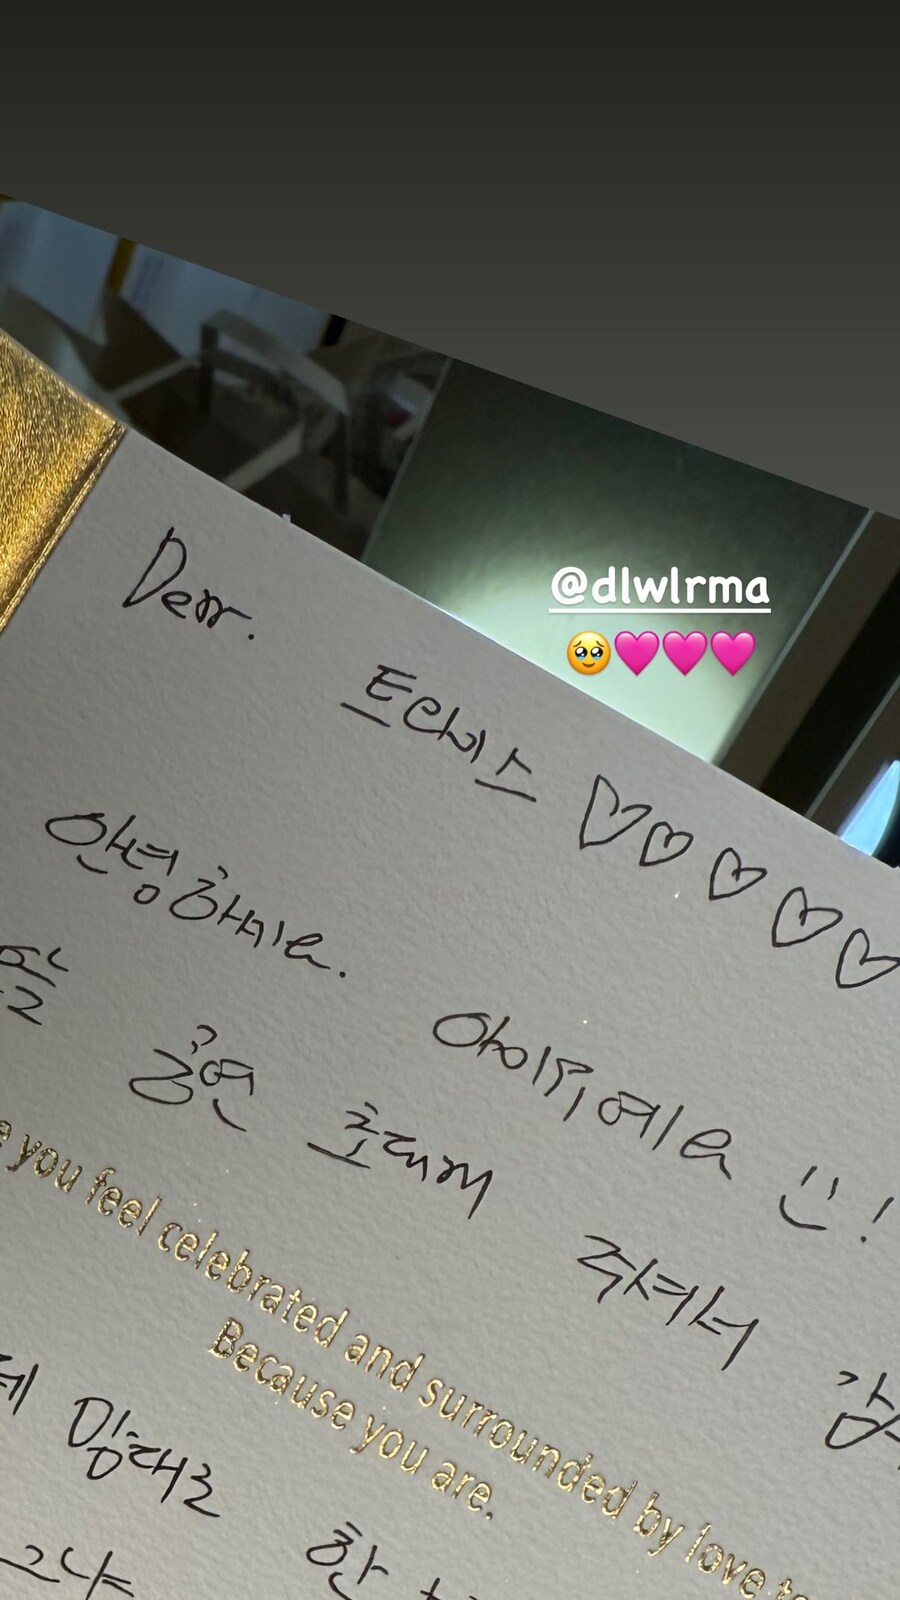 @dlwlrma
🥹🩷🩷🩷
Dear.
트와이스 ♡♡♡♡♡
안녕하세요. 아이유예요 !
공연 초대해 주셔서
you feel celebrated and surrounded by love
Because you are.
맘대로
그냥 한